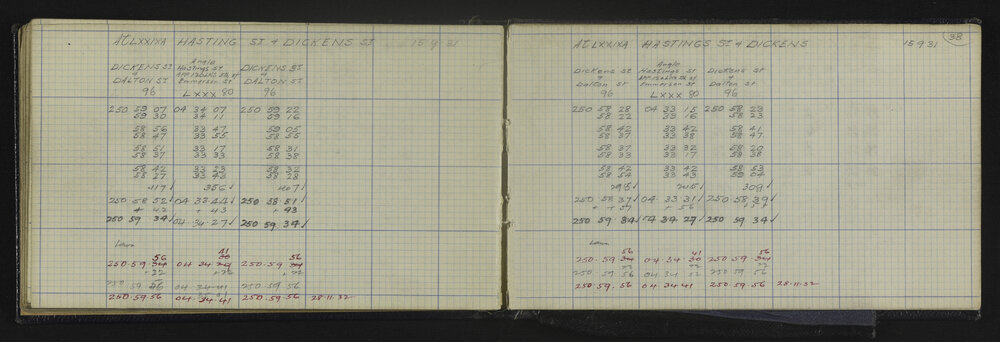 AT LXXIXA HASTING ST & DICKENS ST 15 9 31
DICKENS ST & DALTON ST
96
Angle Hastings St Emmerson St
LXXX 80
DICKENS ST & DALTON ST
96
250 59 07 04 34 07 250 59 22
59 30 34 11 59 16
58 56 33 47 59 05
58 47 33 55 58 55
58 51 33 17 58 31
58 37 33 33 58 38
58 42 33 23 58 32
58 27 33 43 58 28
417 356 407
250 58 52 04 33 44 250 58 51
+ 42 + 43 + 43
250 59 34 04 34 27 250 59 34
56 41 56
250.59.34 04 34 250.59.34
+22 +22
250 59 56 04 34 41 250.59.56
250.59.56 04.34.41 250.59.56 28.11.32
38
AT LXXIXA HASTINGS ST & DICKENS 15 9 31
Dickens St & Dalton St
96
Angle Hastings St Emmerson St
LXXX 80
Dickens St & Dalton St
96
250 58 28 04 33 15 250 58 23
58 22 33 16 58 23
58 42 33 42 58 41
58 37 33 38 58 47
58 37 33 32 58 20
58 33 33 17 58 38
58 42 33 42 58 53
58 54 33 43 59 04
295 309
250 58 37 04 33 31 250 58 39
+ 57 + 56
250 59 34 04 34 27 250 59 34
56 41 56
250.59.34 04.34 250.59.34
22 22
250 59 56 04 34 250 59 56
250.59.56 04.34.41 250.59.56 28.11.32